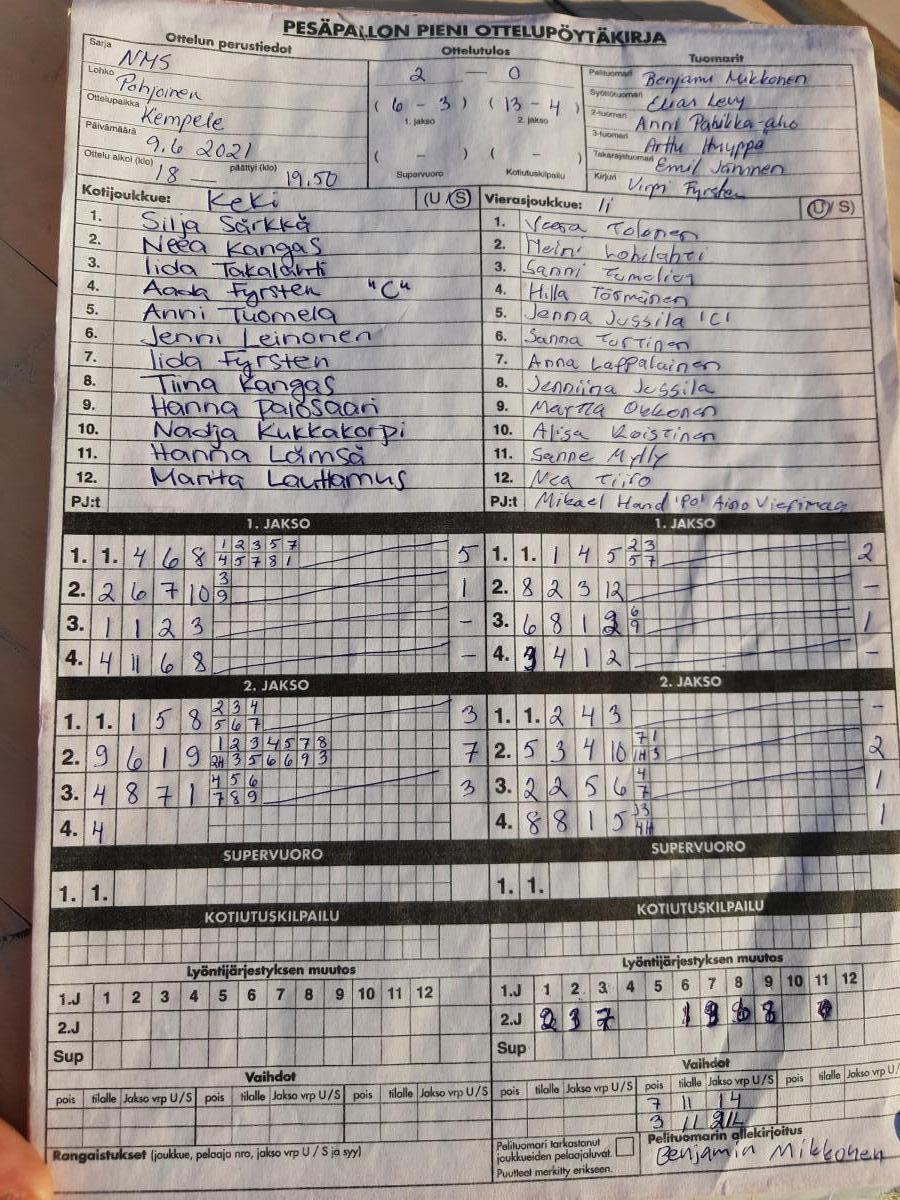 PESÄPALLON PIENI OTTELUPÖYTÄKIRJA
Ottelun perustiedot
Ottelutulos
Tuomarit
Sarja NMS
Lohko Pohjoinen
Ottelupaikka Kempele
Päivämäärä 9.6 2021
Ottelu alkoi (klo) 18 päättyi (klo) 19.50
2 — 0
( 6 - 3 ) ( 13 - 4 )
1. jakso 2. jakso
( - ) ( - )
Supervuoro Kotiutuskilpailu
Pelituomari Benjami Mikkonen
Syöttötuomari Elias Levy
2-tuomari Anni
3-tuomari Arttu
Takarajatuomari Emil
Kirjuri Virpi Fyrsten
Kotijoukkue: Keki (U / S)
1. Silja Särkkä
2. Neea Kangas
3. Iida Takalahti
4. Aada Fyrsten "C"
5. Anni Tuomela
6. Jenni Leinonen
7. Iida Fyrsten
8. Tiina Kangas
9. Hanna Palosaari
10. Nadja Kukkakorpi
11. Hanna Lämsä
12. Marita Lauttamus
PJ:t
Vierasjoukkue: Ii (U / S)
1. Veera Tolonen
2. Heini Lohilahti
3. Sanni
4. Hilla Törmänen
5. Jenna Jussila ICI
6. Sanna Turtinen
7. Anna Lappalainen
8. Jenniina Jussila
9. Martta Okkonen
10. Alisa Koistinen
11. Sanne Mylly
12. Nea Tiiro
PJ:t Mikael Hand 'PO' Aino
1. JAKSO
1. 1. 4 6 8 1 2 3 5 7 5
4 5 7 8 1
2. 2 6 7 10 3 1
9
3. 1 1 2 3 -
4. 4 11 6 8 -
1. JAKSO
1. 1. 1 4 5 2 3 2
5 7
2. 8 2 3 12 -
3. 6 8 1 6 1
9
4. 4 1 2 -
2. JAKSO
1. 1. 1 5 8 2 3 4 3
5 6 7
2. 9 6 1 9 1 2 3 4 5 7 8 7
2H 3 5 6 6 9 3
3. 4 8 7 1 4 5 6 3
7 8 9
4. 4
2. JAKSO
1. 1. 2 4 3 -
2. 5 3 4 10 7 1 2
1H 3
3. 2 2 5 6 4 1
7
4. 8 8 1 5 1
4H
SUPERVUORO
1. 1.
SUPERVUORO
1. 1.
KOTIUTUSKILPAILU
KOTIUTUSKILPAILU
Lyöntijärjestyksen muutos
1.J 1 2 3 4 5 6 7 8 9 10 11 12
2.J
Sup
Lyöntijärjestyksen muutos
1.J 1 2 3 4 5 6 7 8 9 10 11 12
2.J 2 3 7
Sup
Vaihdot
pois tilalle Jakso vrp U/S pois tilalle Jakso vrp U/S pois tilalle Jakso vrp U/S
Vaihdot
pois tilalle Jakso vrp U/S pois tilalle Jakso vrp U/S pois tilalle Jakso vrp U/
7 11 14
3 11
Rangaistukset (joukkue, pelaaja nro, jakso vrp U / S ja syy)
Pelituomari tarkastanut
joukkueiden pelaajaluvat.
Puutteet merkitty erikseen.
Pelituomarin allekirjoitus
Benjamin Mikkonen